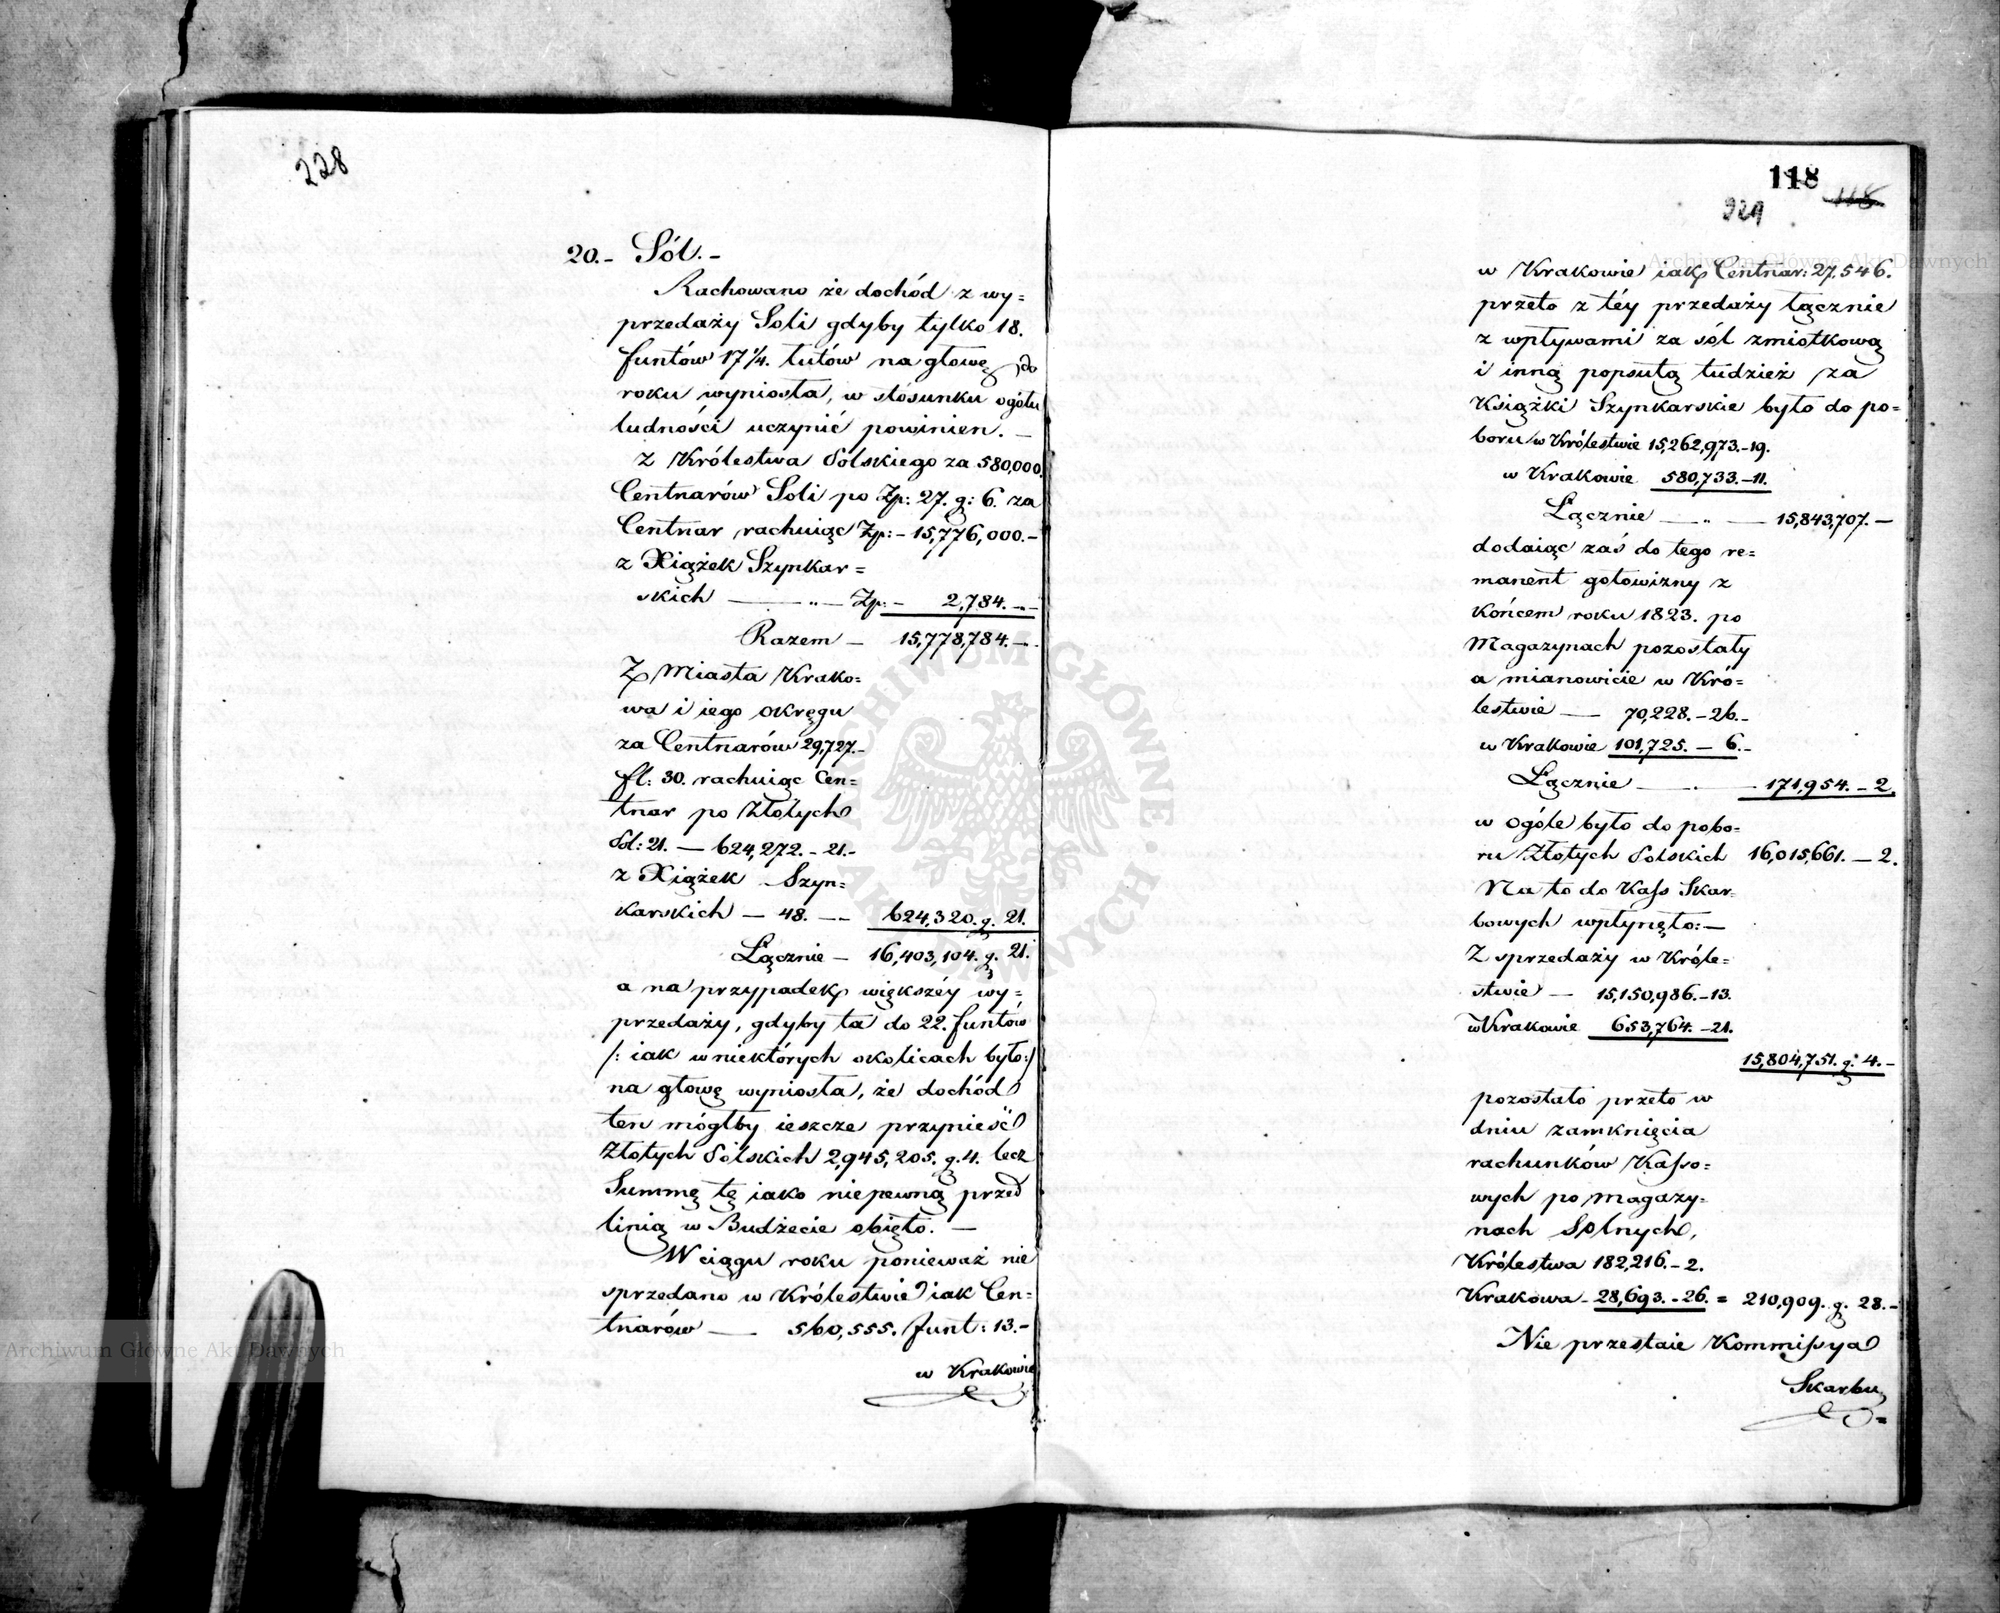 228
20.- Sól.-
Rachowano że dochód z wy=
przedaży Soli gdyby tylko 18.
funtów 17¼. łutów na głowę do
roku wyniosła, w stósunku ogółu
ludności uczynić powinien. —
z Królestwa Polskiego za 580,000.
Centnarów Soli po Zp: 27. g: 6. za
Centnar rachuiąc Zp: - 15,776,000.-
z Xiążek Szynkar=
skich — " — Zp: - 2,784. -.-
Razem — 15,778,784. -.-
Z Miasta Krako=
wa i iego okręgu
za Centnarów 29,727.-
fl: 30. rachuiąc Cen=
tnar po Złotych
Pol: 21. — 624,272. - 21.-
z Xiążek Szyn=
karskich — 48. — 624,320. g. 21.
Łącznie — 16,403,104. g. 21.
a na przypadek większéy wy=
przedaży, gdyby ta do 22. funtów
/: iak w niektórych okolicach było:/
na głowę wyniosła, że dochód
ten mógłby ieszcze przynieść
Złotych Polskich 2,945,205. g. 4. lecz
Summę tę iako niepewną przed
linią w Budżecie obięto. —
W ciągu roku ponieważ nie
sprzedano w Królestwie iak Cen=
tnarów — 560,555. funt: 13.-
w Krakowie
118
118
229
w Krakowie iak Centnar: 27,546.
przeto z téy przedaży łącznie
z wpływami za sól zmiotkową
i inną popsutą tudzież za
Książki Szynkarskie było do po=
boru w Królestwie 15,262,973.-19.
w Krakowie 580,733.-11.
Łącznie — " — 15,843,707. —
dodaiąc zaś do tego re=
manent gotowizny z
końcem roku 1823. po
Magazynach pozostały
a mianowicie w Kró=
lestwie — 70,228. - 26.-
w Krakowie 101,725. - 6.-
Łącznie — . — 171,954. - 2.
w ogóle było do pobo=
ru Złotych Polskich 16,015,661. - 2.
Na to do Kass Skar=
bowych wpłynęło: —
Z sprzedaży w Króle=
stwie — 15,150,986. - 13.
w Krakowie 653,764. - 21.
15,804,751. g: 4. -
pozostało przeto w
dniu zamknięcia
rachunków Kasso=
wych po Magazy=
nach Solnych,
Królestwa 182,216. - 2.
Krakowa - 28,693. - 26. = 210,909. g. 28. -
Nie przestaie Kommissya
Skarbu =
ARCHIWUM GŁÓWNE AKT DAWNYCH
Archiwum Główne Akt Dawnych
Archiwum Główne Akt Dawnych